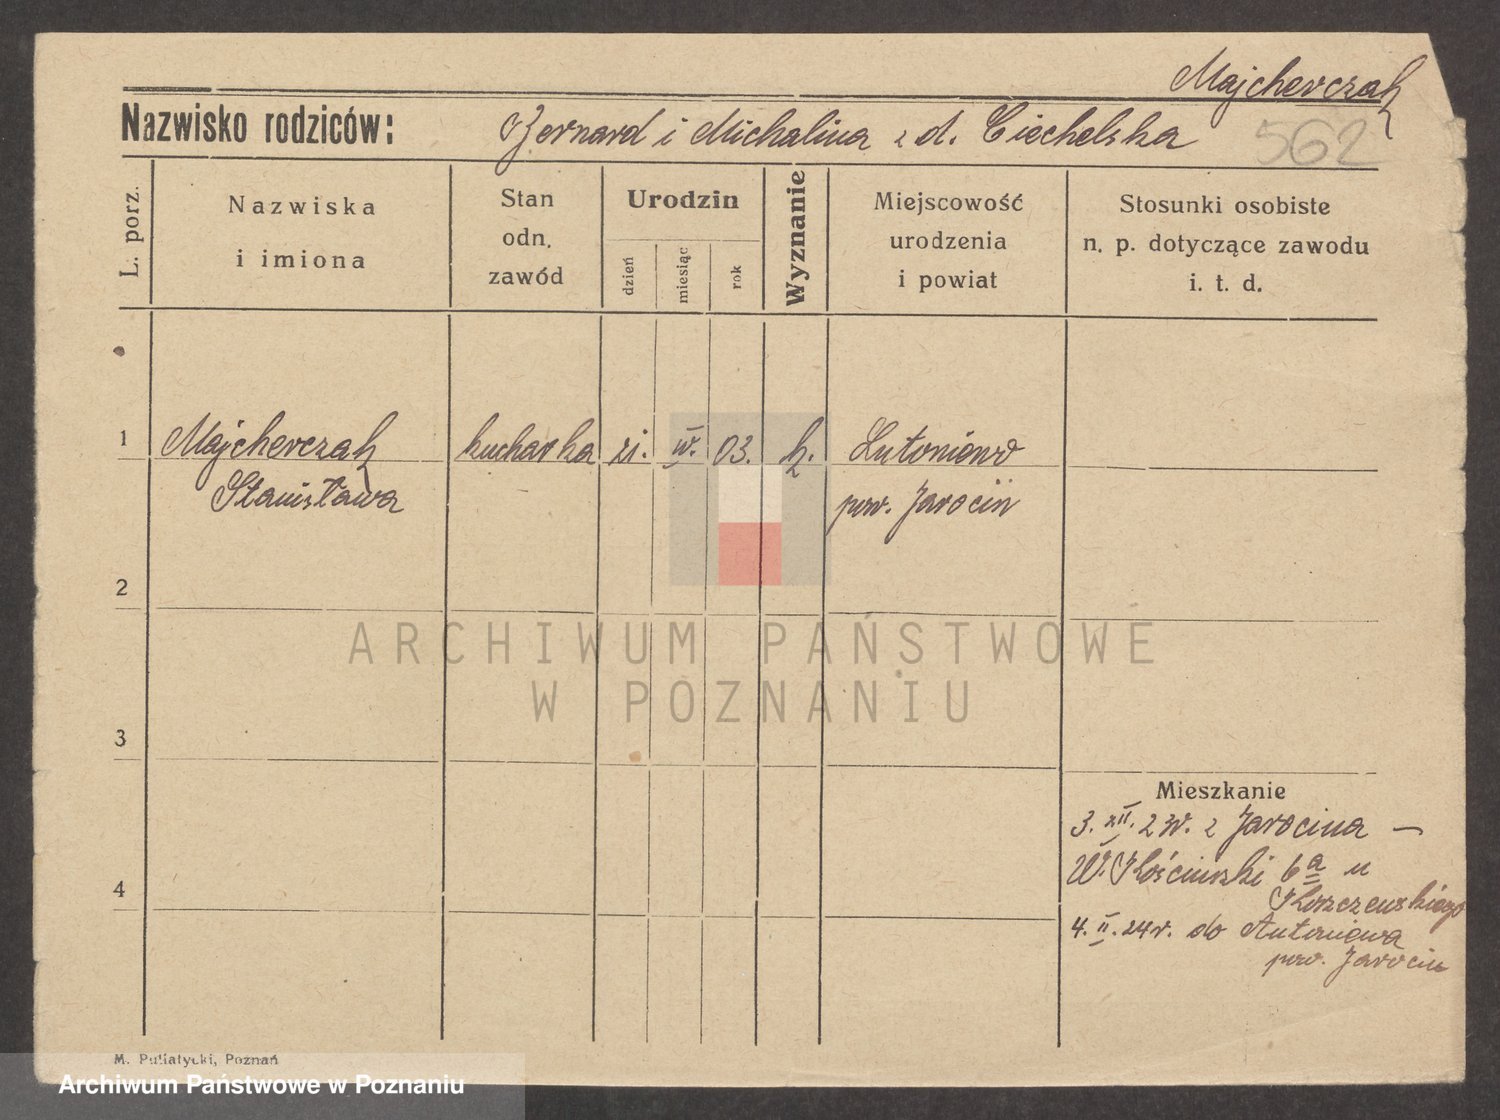 Majcherczak
Nazwisko rodziców: Bernard i Michalina z d. Ciechelska
562
L. porz.
Nazwiska
i imiona
Stan
odn.
zawód
Urodzin
dzień
miesiąc
rok
Wyznanie
Miejscowość
urodzenia
i powiat
Stosunki osobiste
n. p. dotyczące zawodu
i. t. d.
1 Majcherczak kucharka 21. IV. 03. k. Lutoniewo
Stanisława pow. Jarocin
2
ARCHIWUM PAŃSTWOWE
W POZNANIU
3
Mieszkanie
3. XII. 23r. z Jarocina —
W. 6a u
4
4. II. 24r. do
pow. Jarocin
M. Putiatycki, Poznań
Archiwum Państwowe w Poznaniu